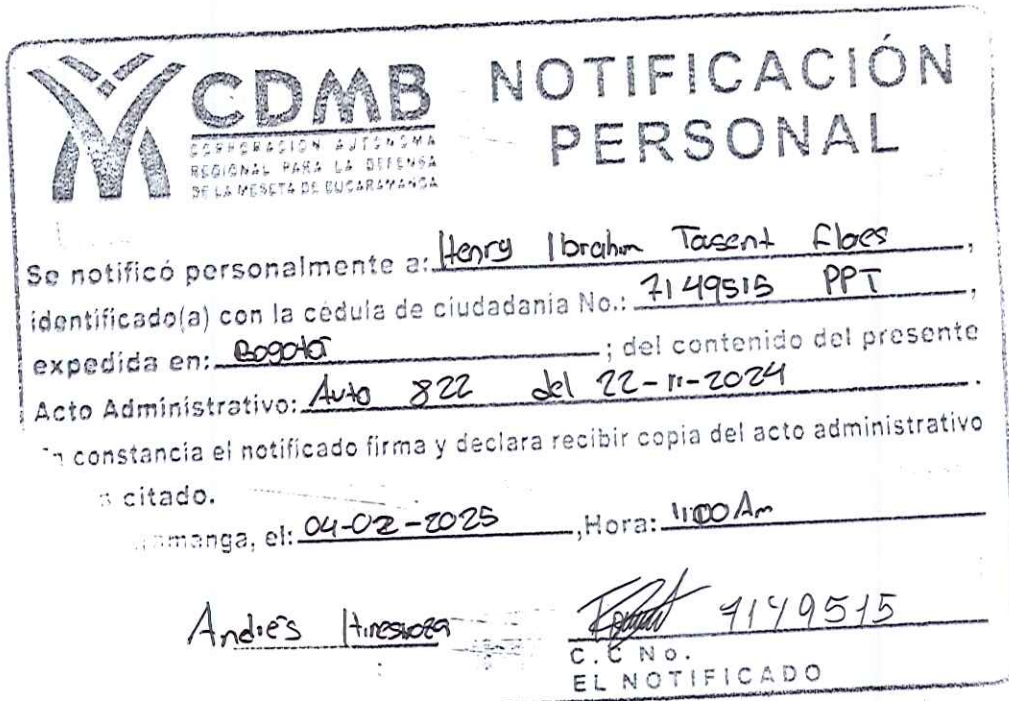 CDMB
CORPORACIÓN AUTÓNOMA
REGIONAL PARA LA DEFENSA
DE LA MESETA DE BUCARAMANGA
NOTIFICACIÓN
PERSONAL
Se notificó personalmente a: Henry Ibrahim Tasent,
identificado(a) con la cédula de ciudadanía No.: 7149515 PPT,
expedida en: Bogotá; del contenido del presente
Acto Administrativo: Auto 822 del 22-11-2024.
constancia el notificado firma y declara recibir copia del acto administrativo
citado.
manga, el: 04-02-2025, Hora: 11:00 Am
Andrés
7149515
C.C No.
EL NOTIFICADO